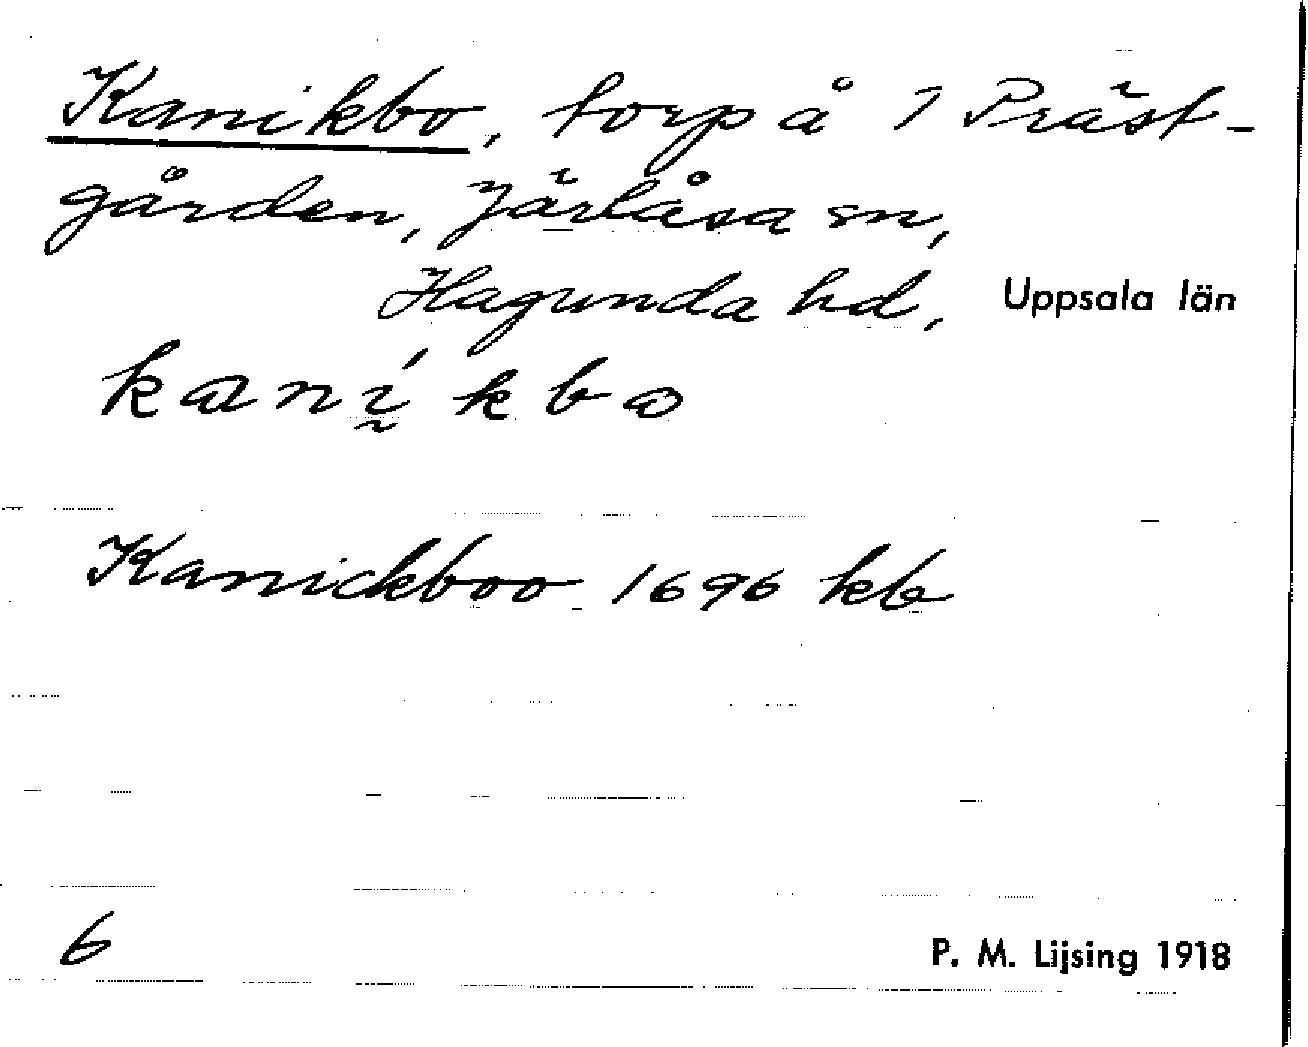 Kanikbo, torp å 1 Präst-
gården, Järlåsa sn,
Hagunda hd, Uppsala län
kanı̰́kbo
Kanickboo 1696 kb
6 P. M. Lijsing 1918